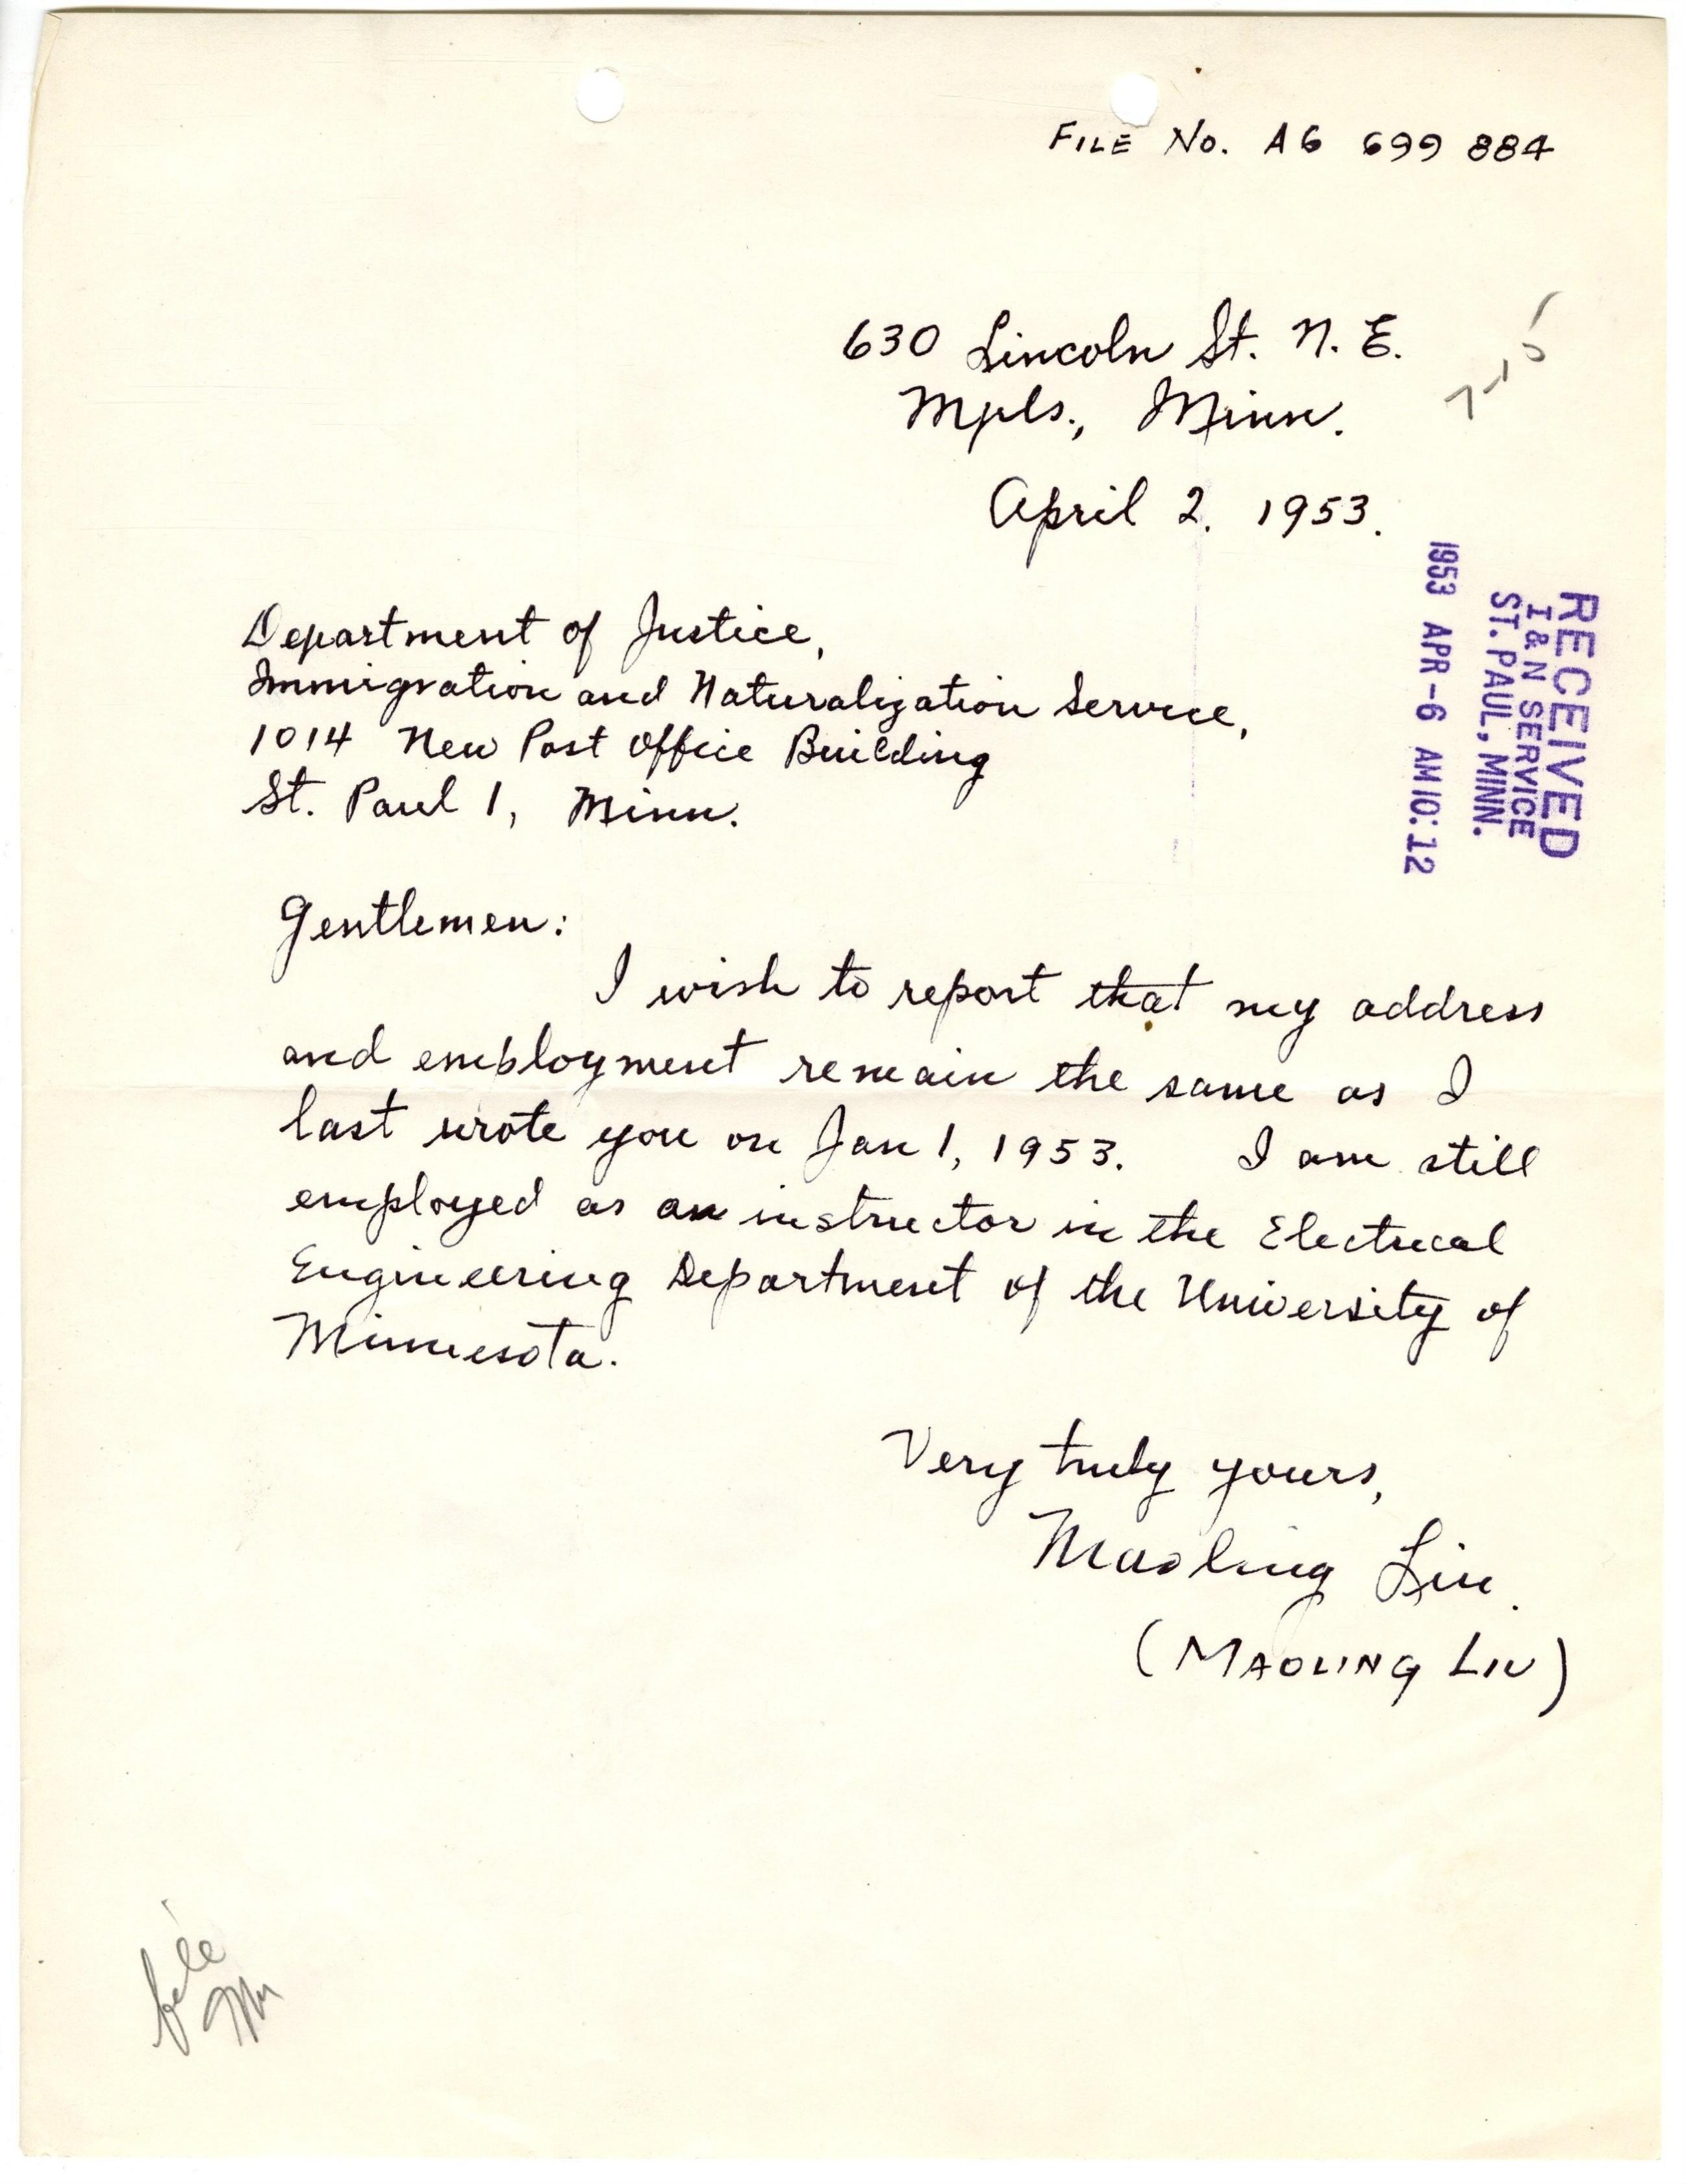 FILE No. A6 699 884
630 Lincoln St. N. E.
Mpls., Minn.
7-10
April 2. 1953.
RECEIVED
I & N SERVICE
ST. PAUL, MINN.
1953 APR -6 AM 10:12
Department of Justice,
Immigration and Naturalization Service,
1014 New Post Office Building
St. Paul 1, Minn.
Gentlemen:
I wish to report that my address
and employment remain the same as I
last wrote you on Jan 1, 1953. I am still
employed as an instructor in the Electrical
Engineering Department of the University of
Minnesota.
Very truly yours,
Maoling Liu.
(MAOLING LIU)
file